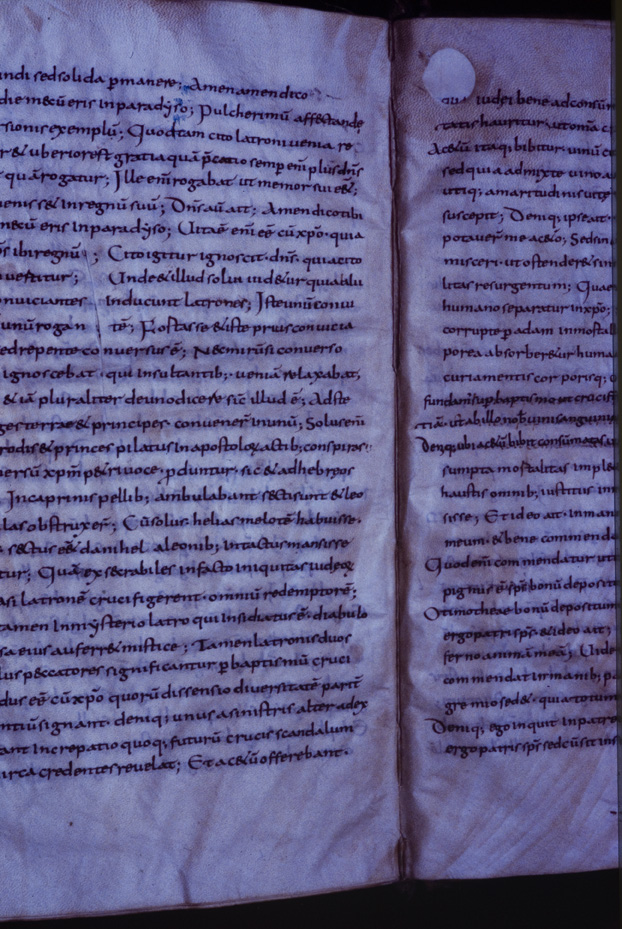 undi sedsolida ꝑmanere; Amenamendico
die mecū eris inparadyso; Pulcherimū affectande
rsionis exemplū; Quodtam cito latroni uenia re
r& uberiorest gratia quā p̄catio semp̄ em̄ plus dn̄s
quārogatur; Ille em̄ rogabat ut memor sui eēt;
enisset inregnū suū; Dn̄s aū ait; Amendicotibi
mecū eris inparadyso; Uita ē em̄ eē cū xp̄o· quia
s ibi regnū; Cito igitur ignoscit· dn̄s· quia cito
uertitur; Unde & illud soluī uid&ur quia alii
onuiciantes inducunt latrones; Iste unū conui
unū rogan tē; Fortasse & iste prius conuicia
edrepente conuersus ē; Nec mirū si conuerso
ignoscebat· qui insultantib; ueniā relaxabat,
& iā pluraliter de uno dicere· sic illud ē; Adste
ges terrae & principes conuener̄ inunū; Solus em̄
rodis & princes pilatus in apostoloꝝ actib; conspiras
ersū xp̄m p&ri uoce· ꝓduntur· sic & ad hebreos
Incaprinis pellib; ambulabant secti sunt & leo
las obstruxer̄; Cū solus helias melotē habuisse·
sectus eēt danihel a leonib; intactus mansisse
tur; Quā exsecrabiles infacto iniquitas iudeoꝝ
asi latronē crucifigerent· omniū redemptorē;
tamen Inmysterio latro qui insidiatus ē· diabulo
sa eius auferr& mistice; Tamen latronis duos
lus peccatores significantur ꝑ baptismū cruci
dus eē cū xp̄o quorū dissensio diuersitatē parit̄
ntiū signant· deniq; unus a sinistris alter adex
ant Increpatio quoq; futurū crucis scandalum
irca credentes reuelat; Et ac&ū offerebant·
qui iudei bene adconsūm
tatis hauritur· ut omīa c
Ac&ū itaq; bibitur· uinū c
sed quia admixte uino a
utiq; amaritudinis uitę
suscepit; Deniq; ipse ait·
potauer̄ me ac&o; Sed sin
misceri· ut ostender& sin
litas resurgentum; Quae
humano separatur inxp̄o;
corrupte ꝑ adam inmortal
porea absorber&ur huma
curia mentis corporisq;
fundam sup̄ baptismo ut crucif
tiā· ut ab illo nob̄ unū sanguinis
Deniq; ubi ac&ū bibit consūmata s
sumpta mortalitas imple
haustis omnib; uistitus im
sisse; Et ideo ait· in man
meum· & bene commenda
Quod em̄ commendatur ut
pignus ē· sp̄s bonū deposit
O timotheae bonū depositum
ergo patri sp̄s· & ideo ait;
ferno animā meā; Uide
commendat in manib; pa
gremio sed &· quia totum
Deniq; ego inquit in patre
ergo patris sp̄s sed cū sit in